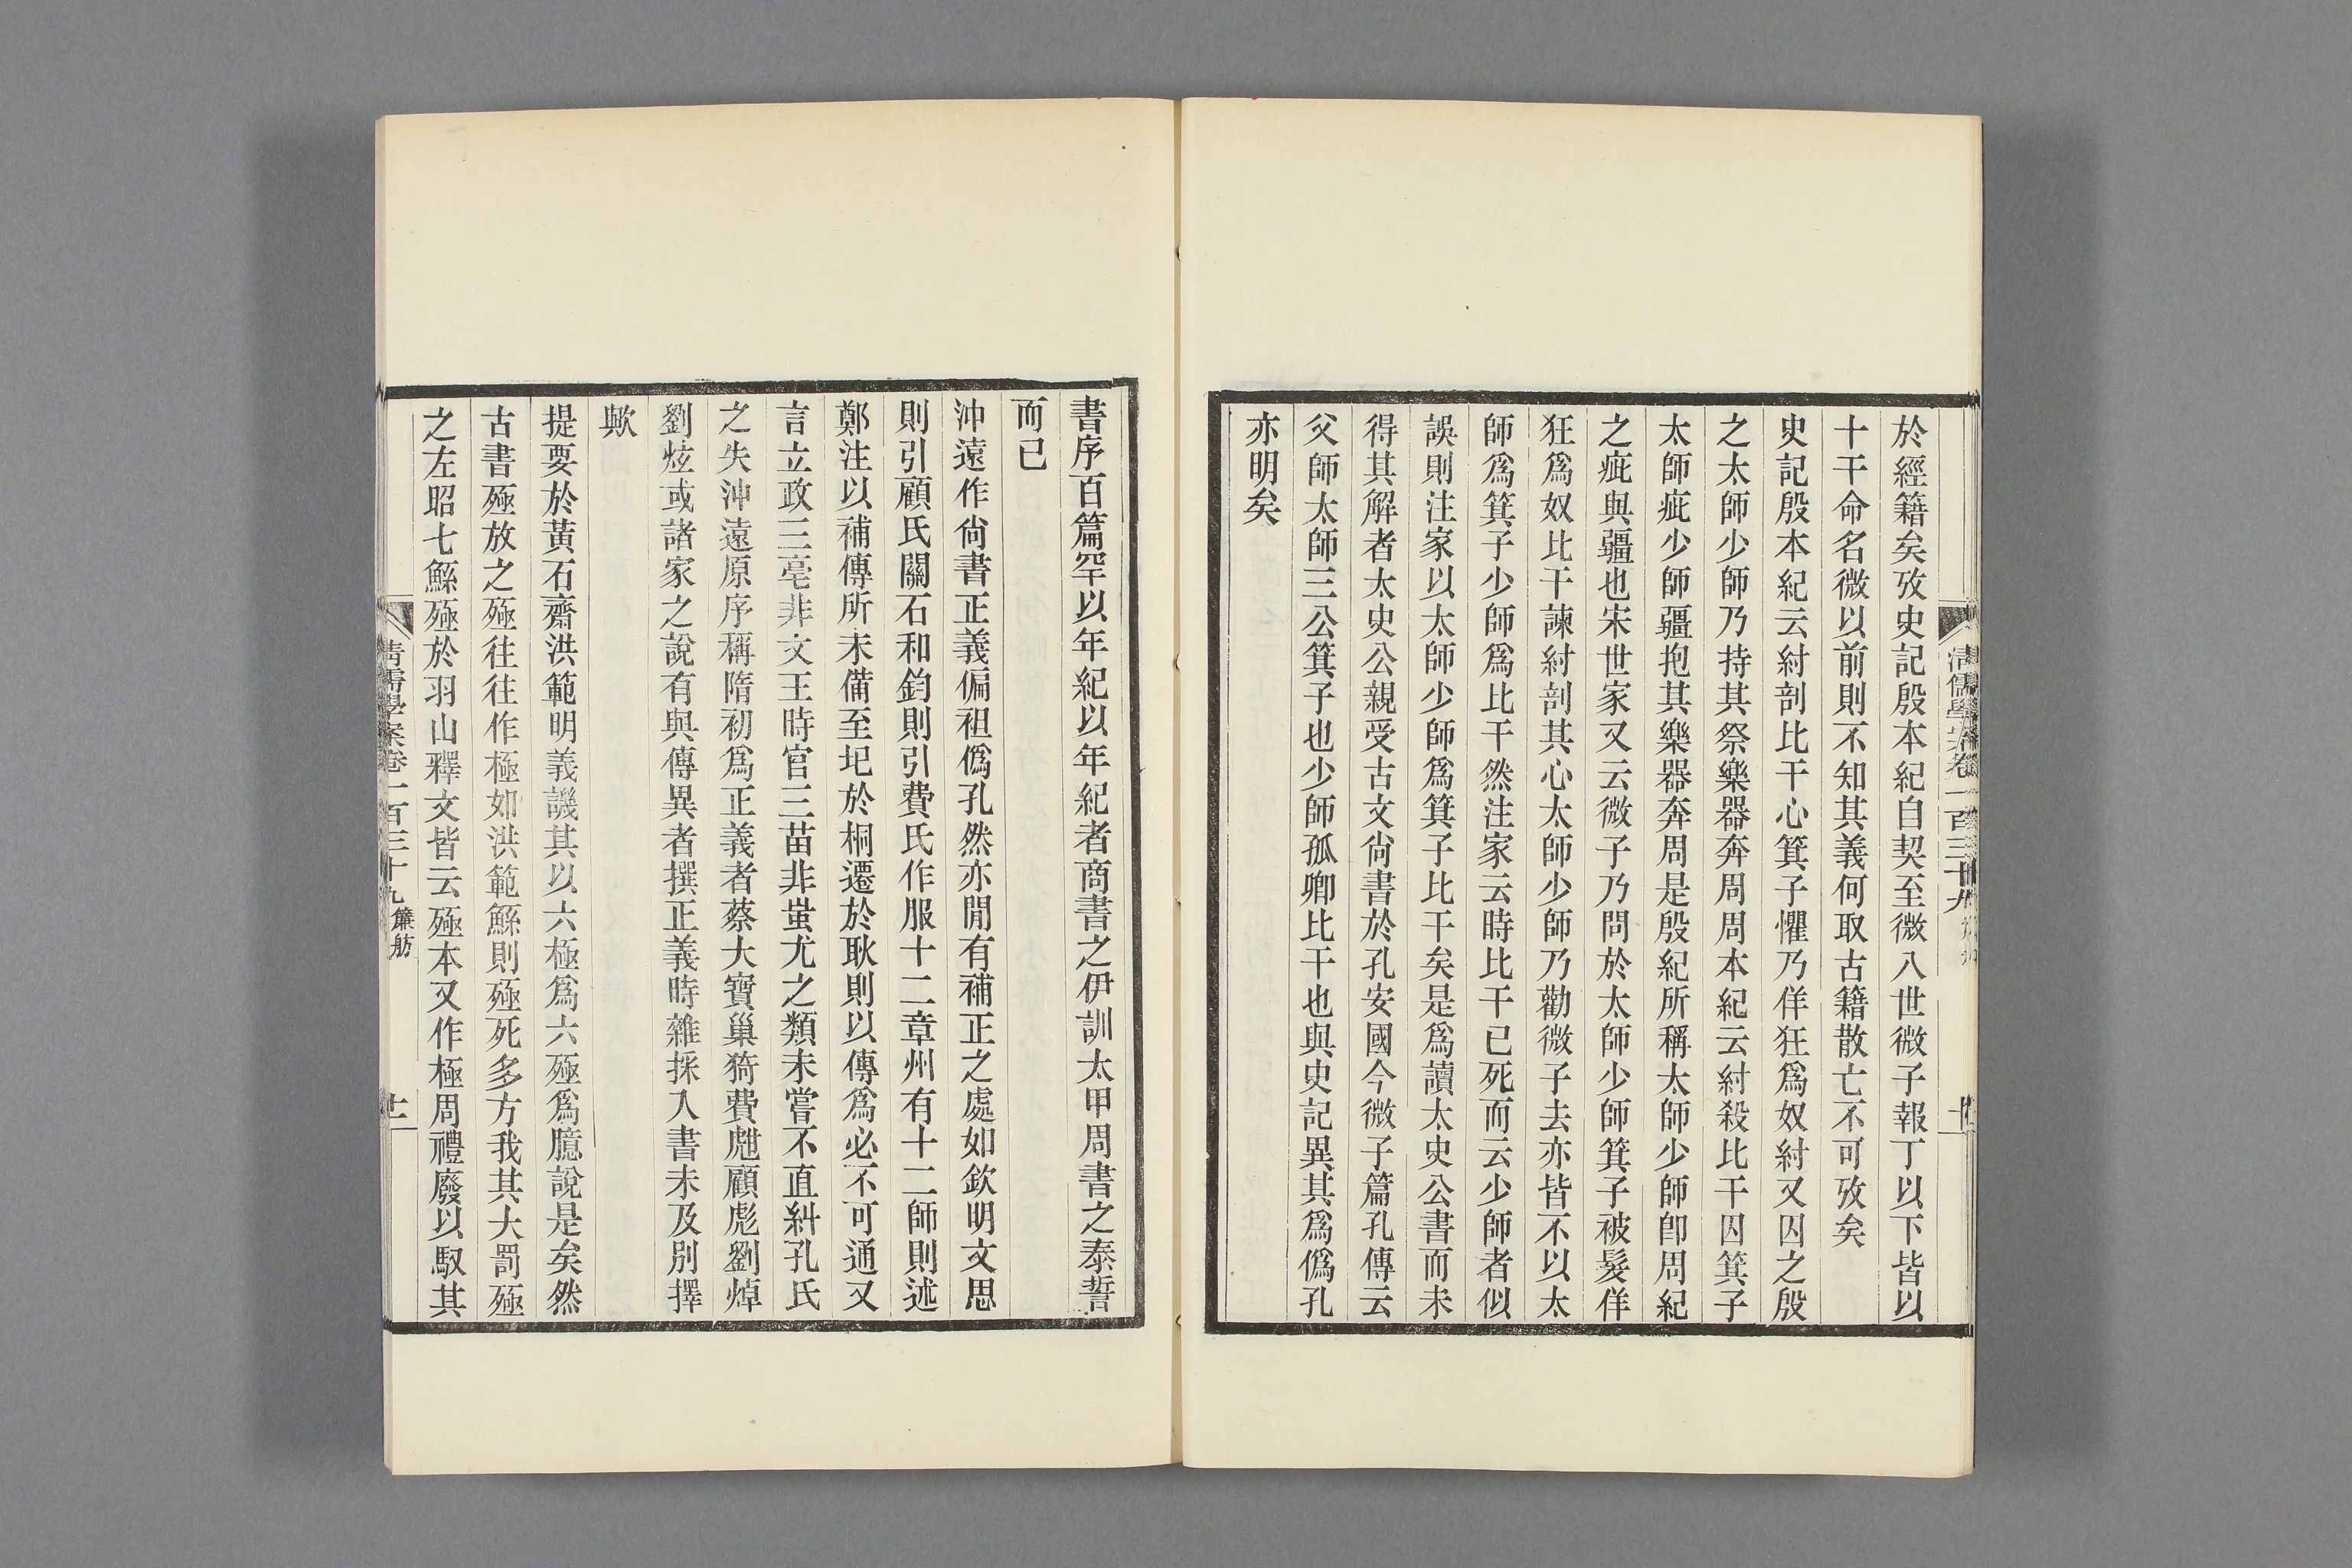 於經籍矣攷史記殷本紀自契至微八世微子報丁以下皆以
十干命名微以前則不知其義何取古籍散亡不可攷矣
史記殷本紀云紂剖比干心箕子懼乃佯狂爲奴紂又囚之殷
之太師少師乃持其祭樂器奔周周本紀云紂殺比干囚箕子
太師疵少師疆抱其樂器奔周是殷紀所稱太師少師卽周紀
之疵與疆也宋世家又云微子乃問於太師少師箕子被髮佯
狂爲奴比干諫紂剖其心太師少師乃勸微子去亦皆不以太
師爲箕子少師爲比干然注家云時比干已死而云少師者似
誤則注家以太師少師爲箕子比干矣是爲讀太史公書而未
得其解者太史公親受古文尙書於孔安國今微子篇孔傳云
父師太師三公箕子也少師孤卿比干也與史記異其爲僞孔
亦明矣
清儒學案卷一百三十九
書序百篇罕以年紀以年紀者商書之伊訓太甲周書之泰誓
而已
沖遠作尙書正義偏袒僞孔然亦閒有補正之處如欽明文思
則引顧氏關石和鈞則引費氏作服十二章州有十二師則述
鄭注以補傳所未備至圯於桐遷於耿則以傳爲必不可通又
言立政三亳非文王時官三苗非蚩尤之類未嘗不直糾孔氏
之失沖遠原序稱隋初爲正義者蔡大寶巢猗費甝顧彪劉焯
劉炫或諸家之說有與傳異者撰正義時雜採入書未及別擇
歟
提要於黃石齋洪範明義譏其以六極爲六殛爲臆說是矣然
古書殛放之殛往往作極如洪範鯀則殛死多方我其大罰殛
之左昭七鯀殛於羽山釋文皆云殛本又作極周禮廢以馭其
清儒學案卷一百三十九 簾舫
十二